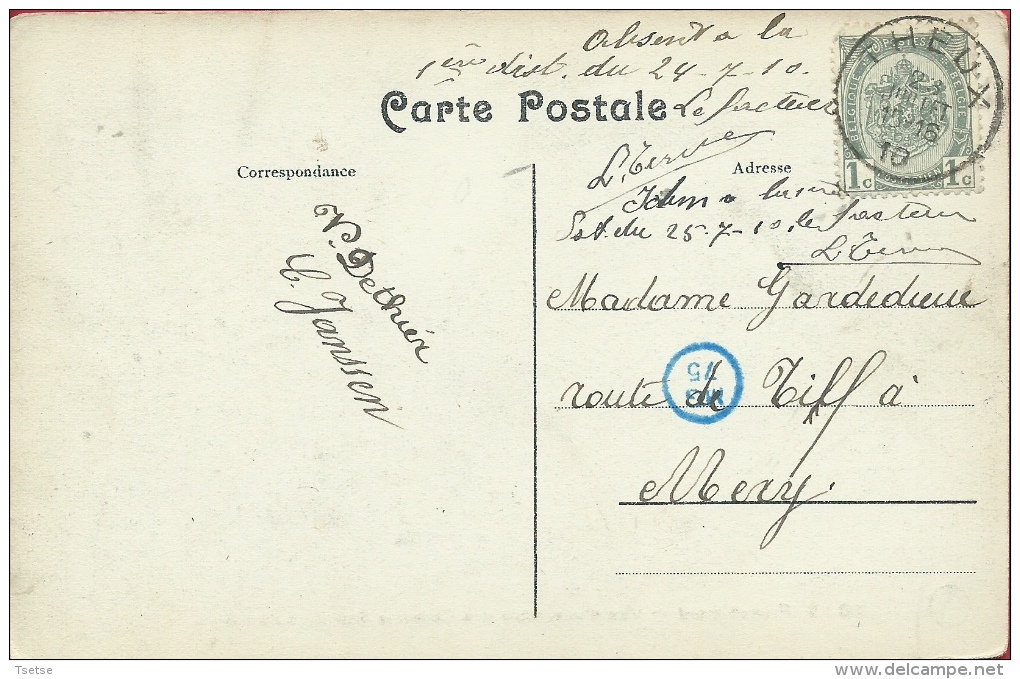 Absent à la
1ère dist. du 24-7-10.
Le facteur
Carte Postale
THEUX
10
POSTES
BELGIQUE BELGIE
1c 1c
Correspondance
Adresse
Idem à
du 25-7-10, le facteur
Vr. Dethier
C. Janssen
Madame Gardedieu
route de Tilff à
Mery.
75
Tsetse
www.delcampe.net